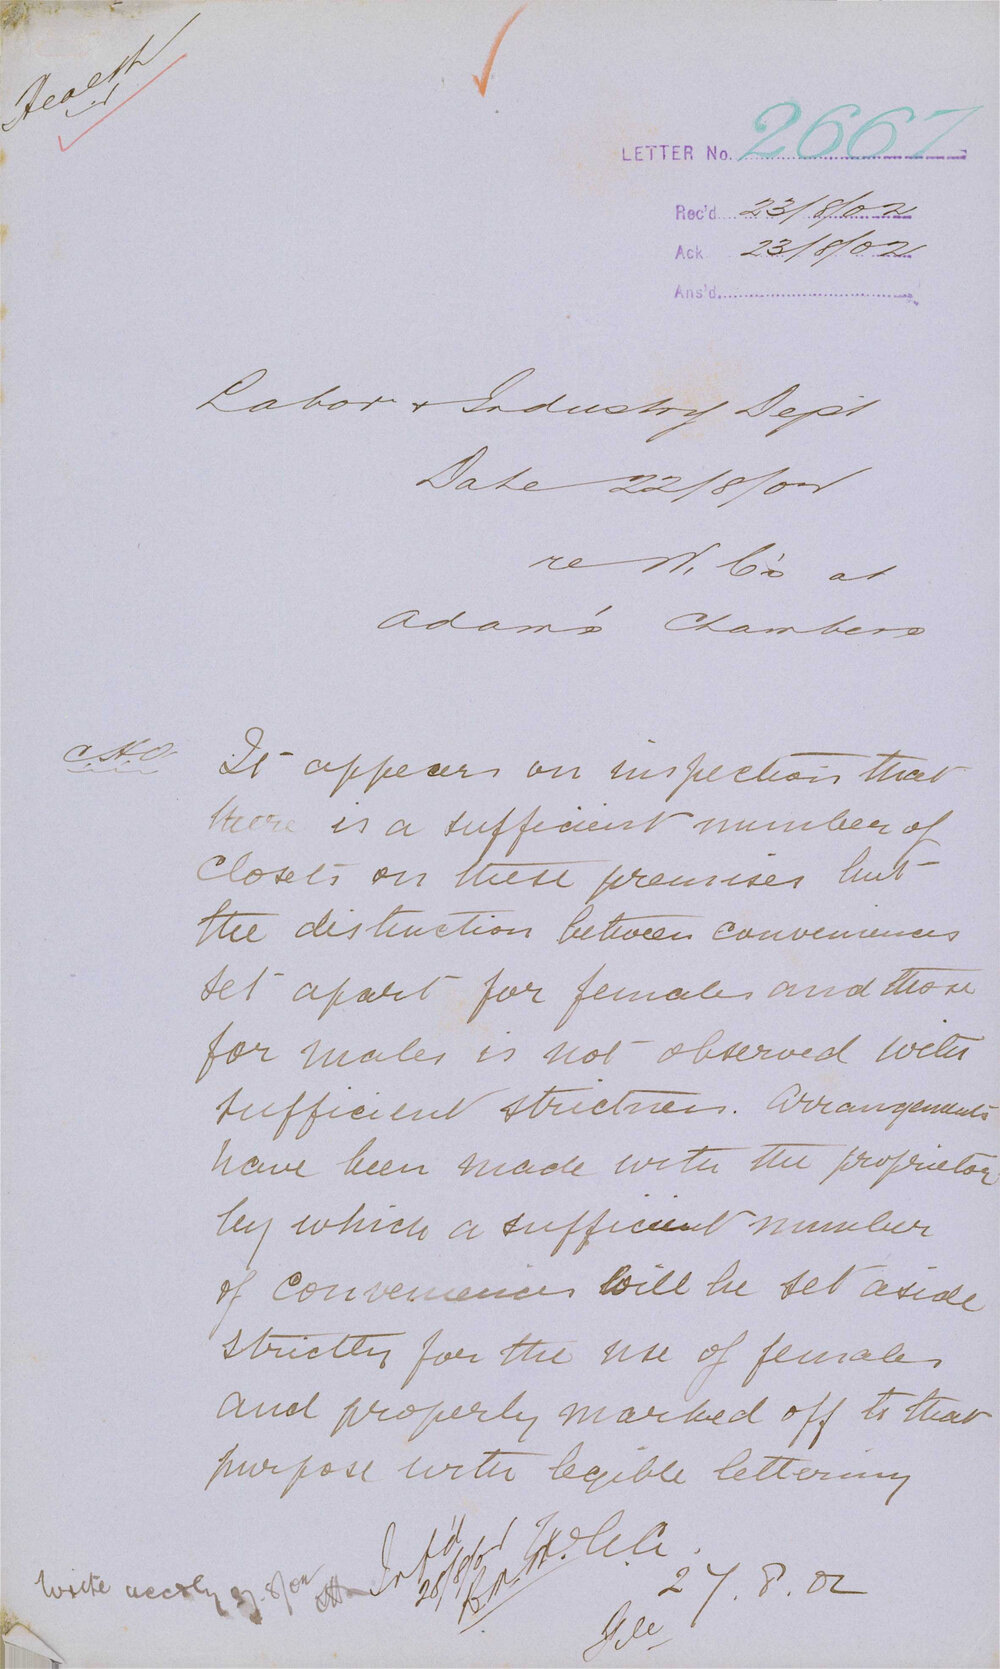 Health
LETTER No. 2667
Rec'd 23/8/02
Ack 23/8/02
Ans'd
Labor & Industry Dept
Date 22/8/02
re W. C's at
Adam's Chambers
C.H.O
It appears on inspection that
there is a sufficient number of
closets on these premises but
the distinction between conveniences
set apart for females and those
for males is not observed with
sufficient strictness. Arrangements
have been made with the proprietor
by which a sufficient number
of conveniences will be set aside
strictly for the use of females
and properly marked off to that
purpose with legible lettering
Inf'd
28/8/02
27.8.02
Write accdly 27.8/02